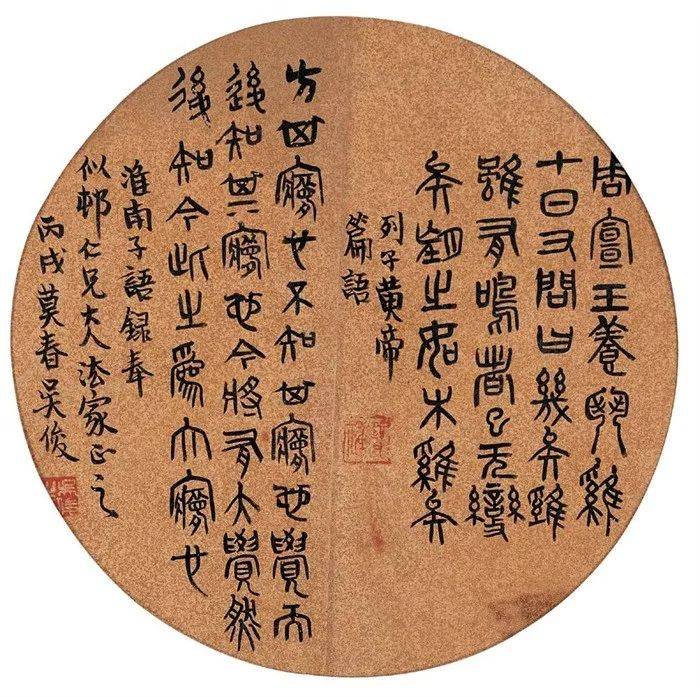 周宣王養鬭雞
十日又問曰幾矣雞
雖有鳴者已无變
矣望之如木雞矣
列子黃帝
篇語
方其夢也不知其夢也覺而
後知其夢也今將有大覺然
後知今此之為大夢也
淮南子語録奉
似邨仁兄大人法家正之
丙戌莫春吳俊